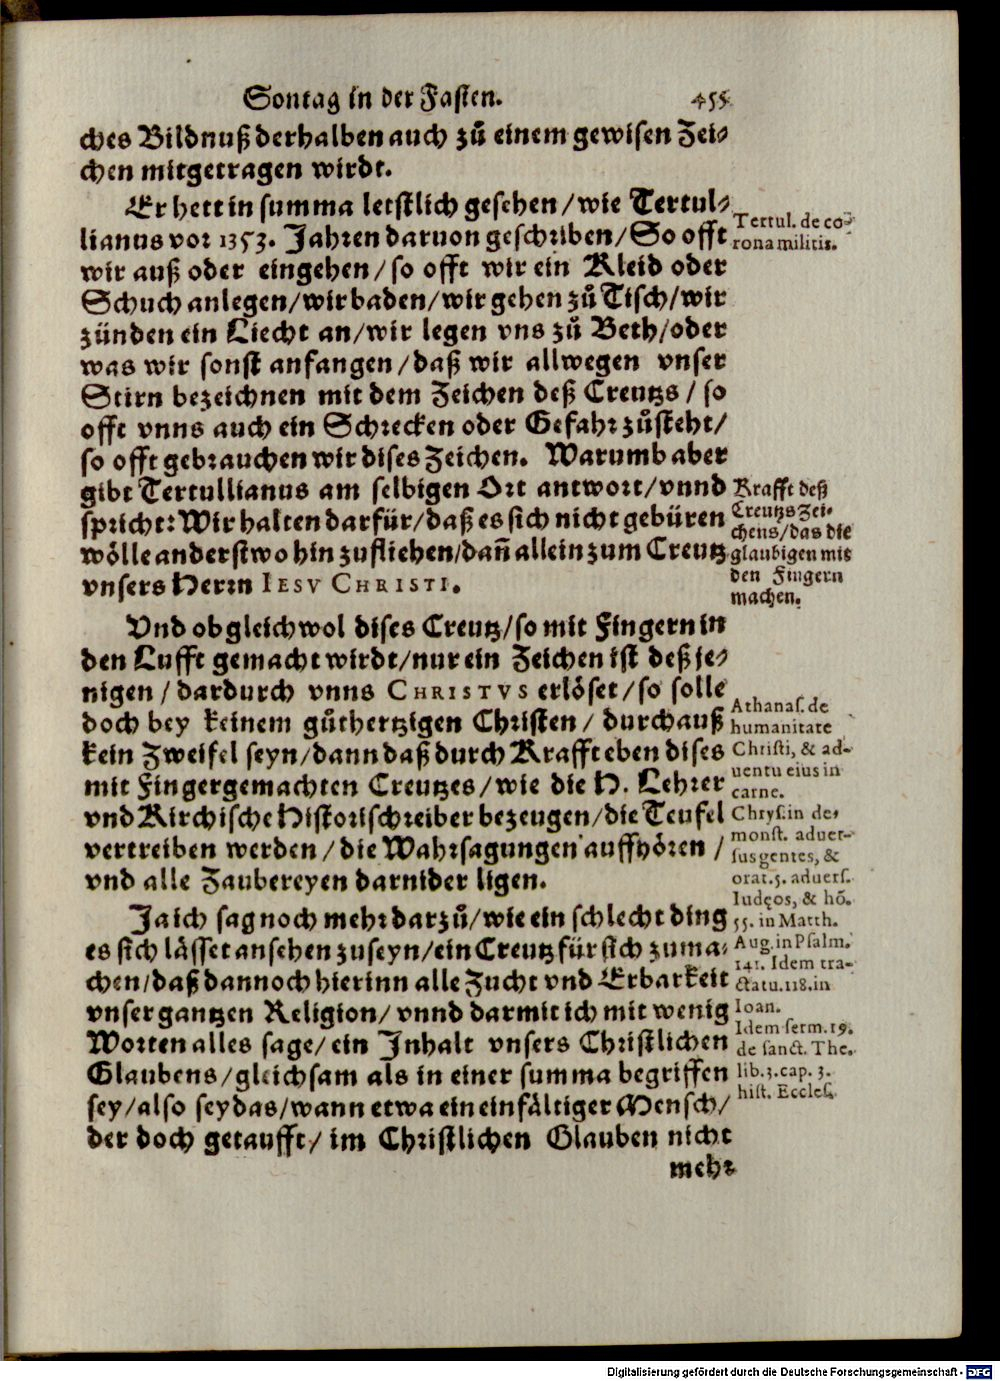 Sontag in der Fasten. 455
ches Bildnuß derhalben auch zů einem gewisen Zei-
chen mitgetragen wirdt.
Er hett in summa letstlich gesehen/wie Tertul-
lianus vor 1353. Jahren daruon geschriben/So offt
wir auß oder eingehen/so offt wir ein Kleid oder
Schuch anlegen/wir baden/wir gehen zů Tisch/wir
zünden ein Liecht an/wir legen vns zů Beth/oder
was wir sonst anfangen/daß wir allwegen vnser
Stirn bezeichnen mit dem Zeichen deß Creutzs/so
offt vnns auch ein Schrecken oder Gefahr zůsteht/
so offt gebrauchen wir dises Zeichen. Warumb aber
gibt Tertullianus am selbigen Ort antwort/vnnd
spricht: Wir halten darfür/daß es sich nicht gebüren
wölle anderstwo hin zufliehen/dañ allein zum Creutz
vnsers Herrn IESV CHRISTI.
Vnd ob gleichwol dises Creutz/so mit Fingern in
den Lufft gemacht wirdt/nur ein Zeichen ist deß je-
nigen/dardurch vnns CHRISTVS erlöset/so solle
doch bey keinem gůthertzigen Christen/durchauß
kein Zweifel seyn/dann daß durch Krafft eben dises
mit Finger gemachten Creutzes/wie die H. Lehrer
vnd Kirchische Historischreiber bezeugen/die Teufel
vertreiben werden/die Wahrsagungen auffhören/
vnd alle Zaubereyen darnider ligen.
Ja ich sag noch mehr darzů/wie ein schlecht ding
es sich låsset ansehen zuseyn/ein Creutz für sich zuma-
chen/daß dannoch hierinn alle Zucht vnd Erbarkeit
vnser gantzen Religion/vnnd darmit ich mit wenig
Worten alles sage/ein Inhalt vnsers Christlichen
Glaubens/gleichsam als in einer summa begriffen
sey/also sey das/wann etwa ein einfåltiger Mensch/
der doch getaufft/im Christlichen Glauben nicht
mehr
Tertul. de co-
rona militis.
Krafft deß
Creutzs Zei-
chens/das die
glaubigen mit
den Fingern
machen.
Athanas. de
humanitate
Christi, & ad-
uentu eius in
carne.
Chrys. in de-
monst. aduer-
sus gentes, &
orat. 5. aduers.
Iudęos, & hō.
55. in Matth.
Aug. in Psalm.
141. Idem tra-
ctatu. 118. in
Ioan.
Idem serm. 19.
de sanct. The.
lib. 3. cap. 3.
hist. Eccles.
Digitalisierung gefördert durch die Deutsche Forschungsgemeinschaft - DFG